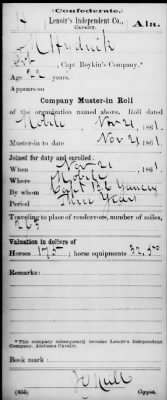 (Confederate.)
Lenoir's Independent Co., Ala.
Cavalry.
Hydrick
, Capt Boykin's Company.*
Age years.
Appears on
Company Muster-in Roll
of the organization named above. Roll dated
Mobile, Nov 21, 1861.
Muster-in to date Nov 21, 1861.
Joined for duty and enrolled:
When Nov 21, 1861.
Where Mobile
By whom Capt B E Yancey
Period Three Years
Traveling to place of rendezvous, number of miles,
Valuation in dollars of
Horses 175 horse equipments
Remarks:
*This company subsequently became Lenoir's Independent
Company, Alabama Cavalry.
Book mark:
(656) Copyist.